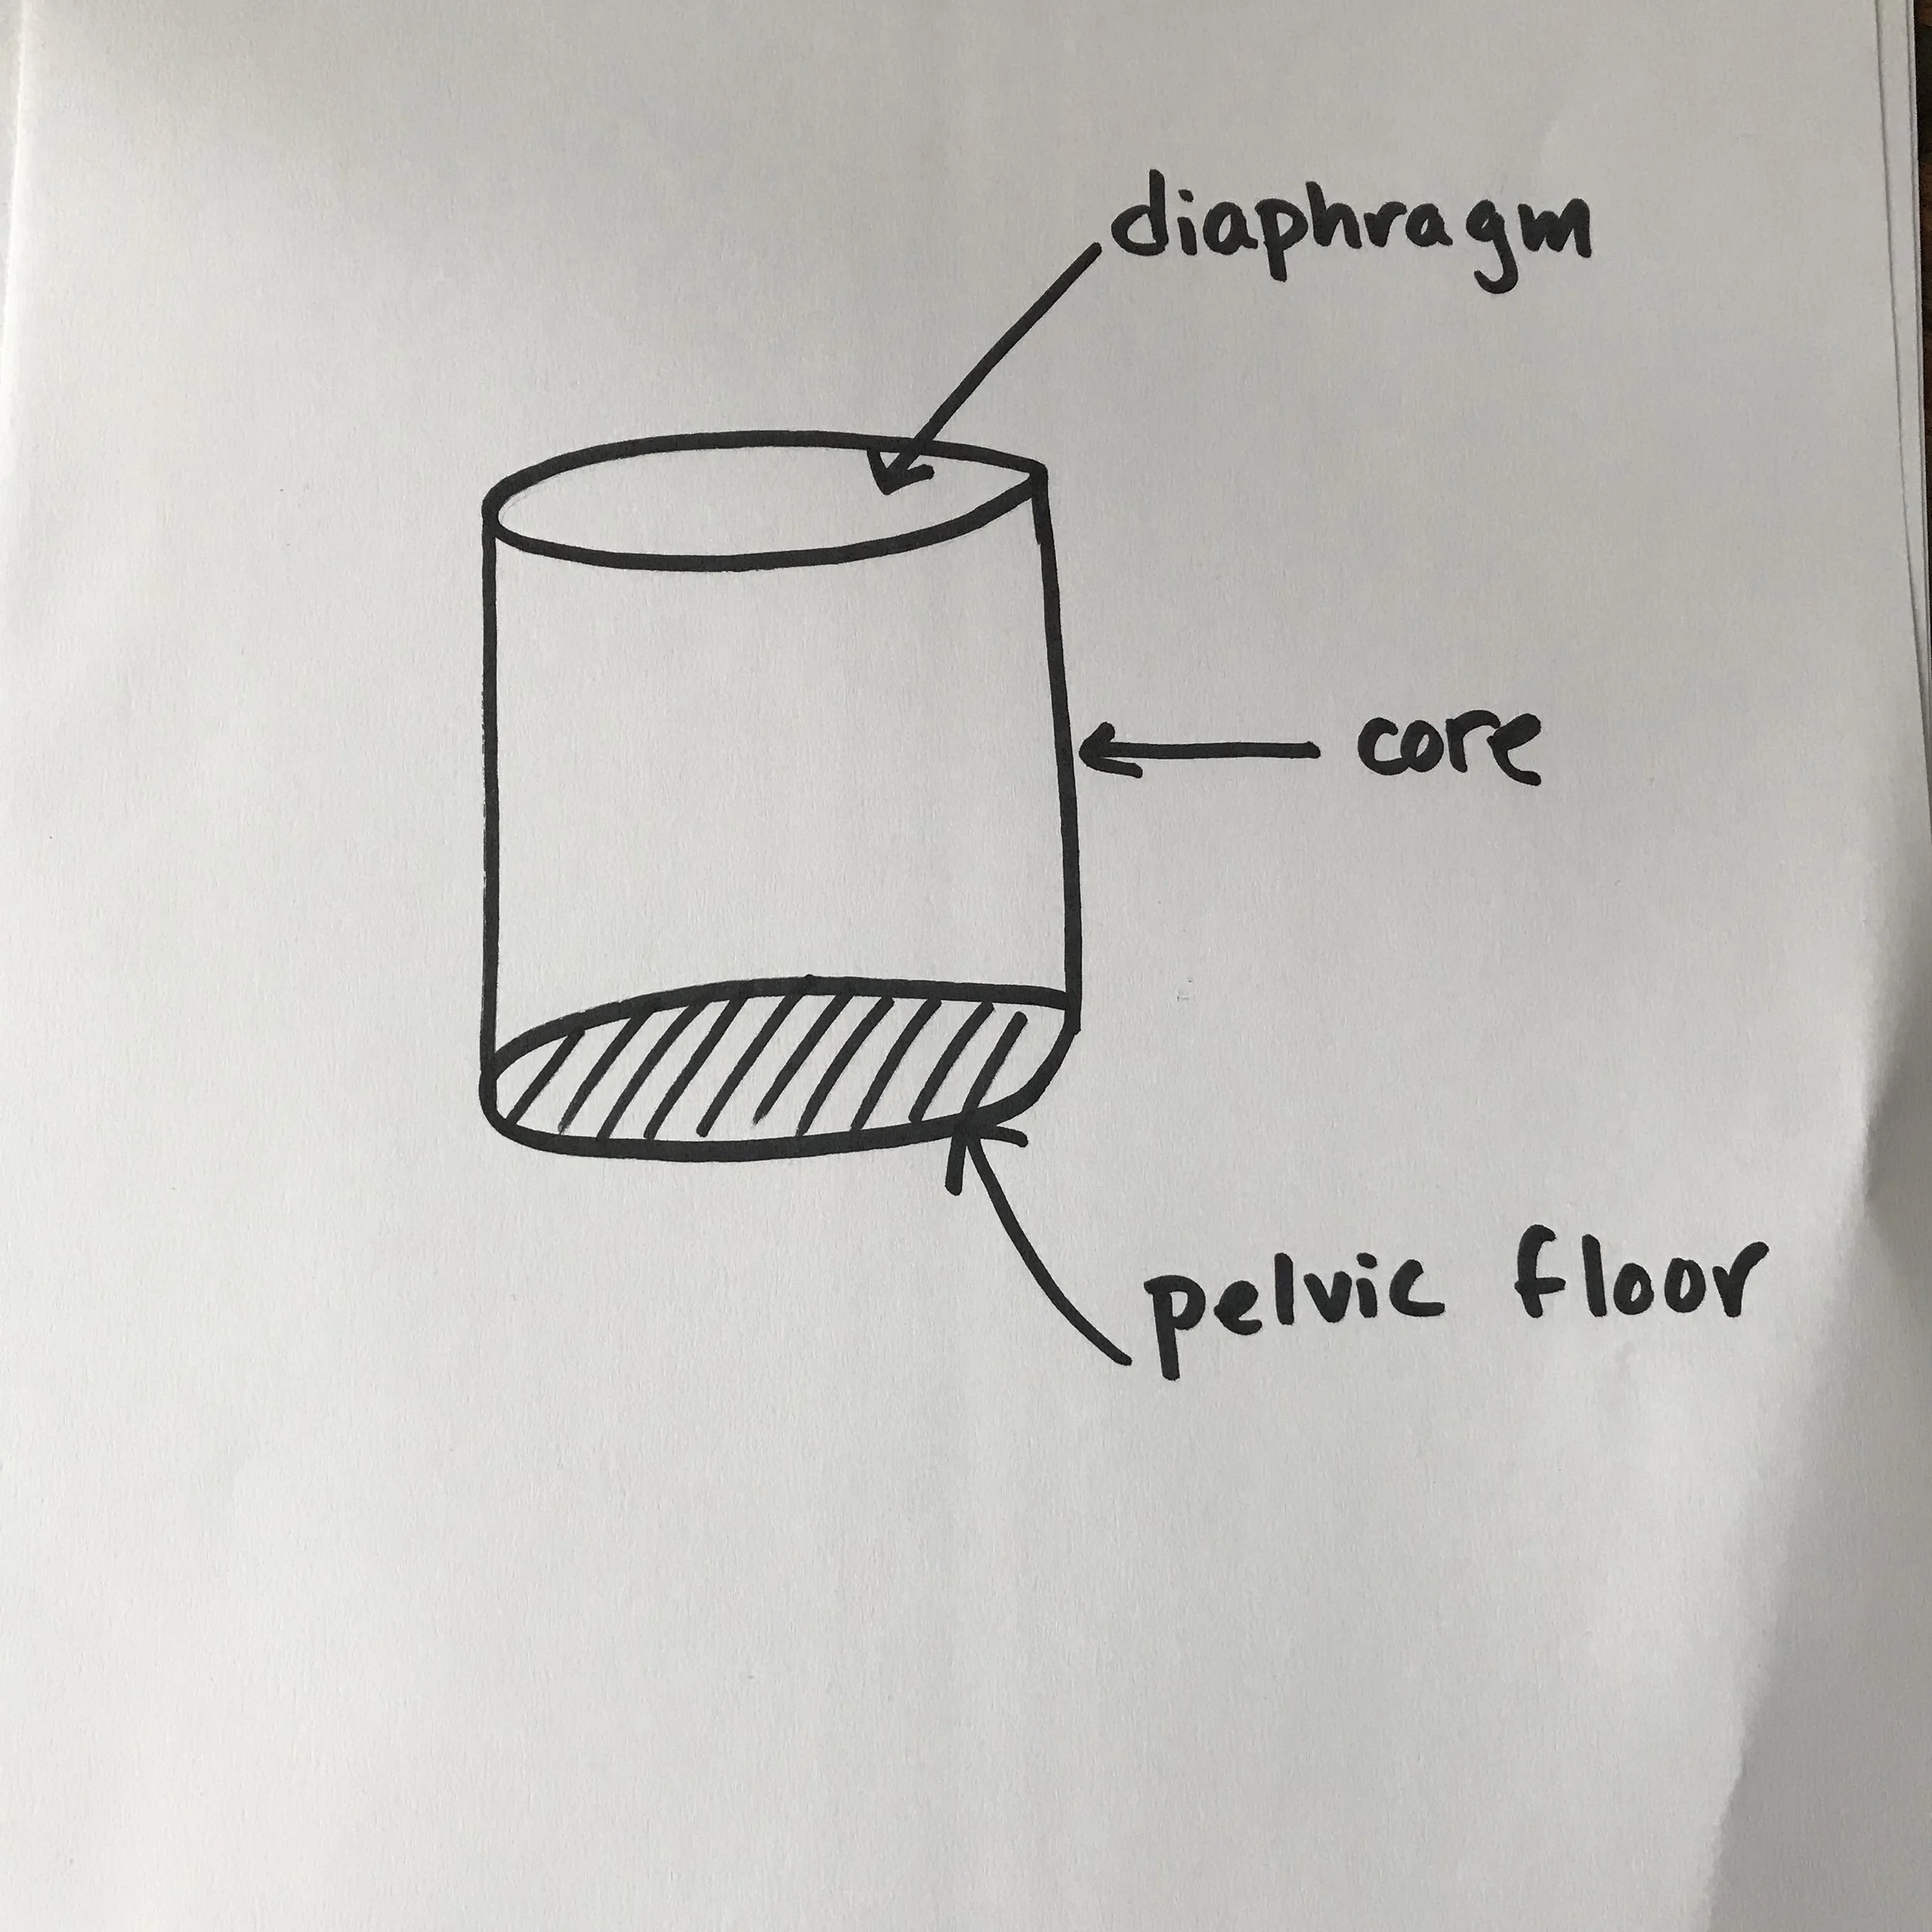 diaphragm
core
pelvic floor